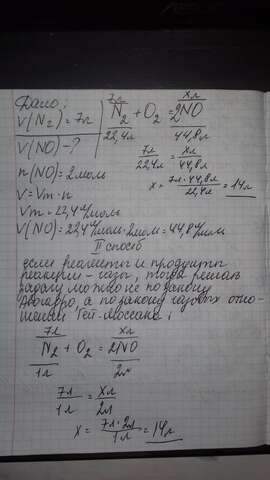 Дано:
V(N₂) = 7л
V(NO) - ?
7л xл
N₂ + O₂ = 2NO
22,4л 44,8л
7л/22,4л = xл/44,8л
x = 7л·44,8л/22,4л = 14л
n(NO) = 2моль
V = Vm · n
Vm = 22,4 л/моль
V(NO) = 22,4 л/моль · 2моль = 44,8 л/моль
II способ
если реагенты и продукты
реакции - газы, тогда решать
задачу можно не по закону
Авогадро, а по закону газовых отно-
шений Гей-Люссака:
7л xл
N₂ + O₂ = 2NO
1л 2л
7л/1л = xл/2л
x = 7л·2л/1л = 14л